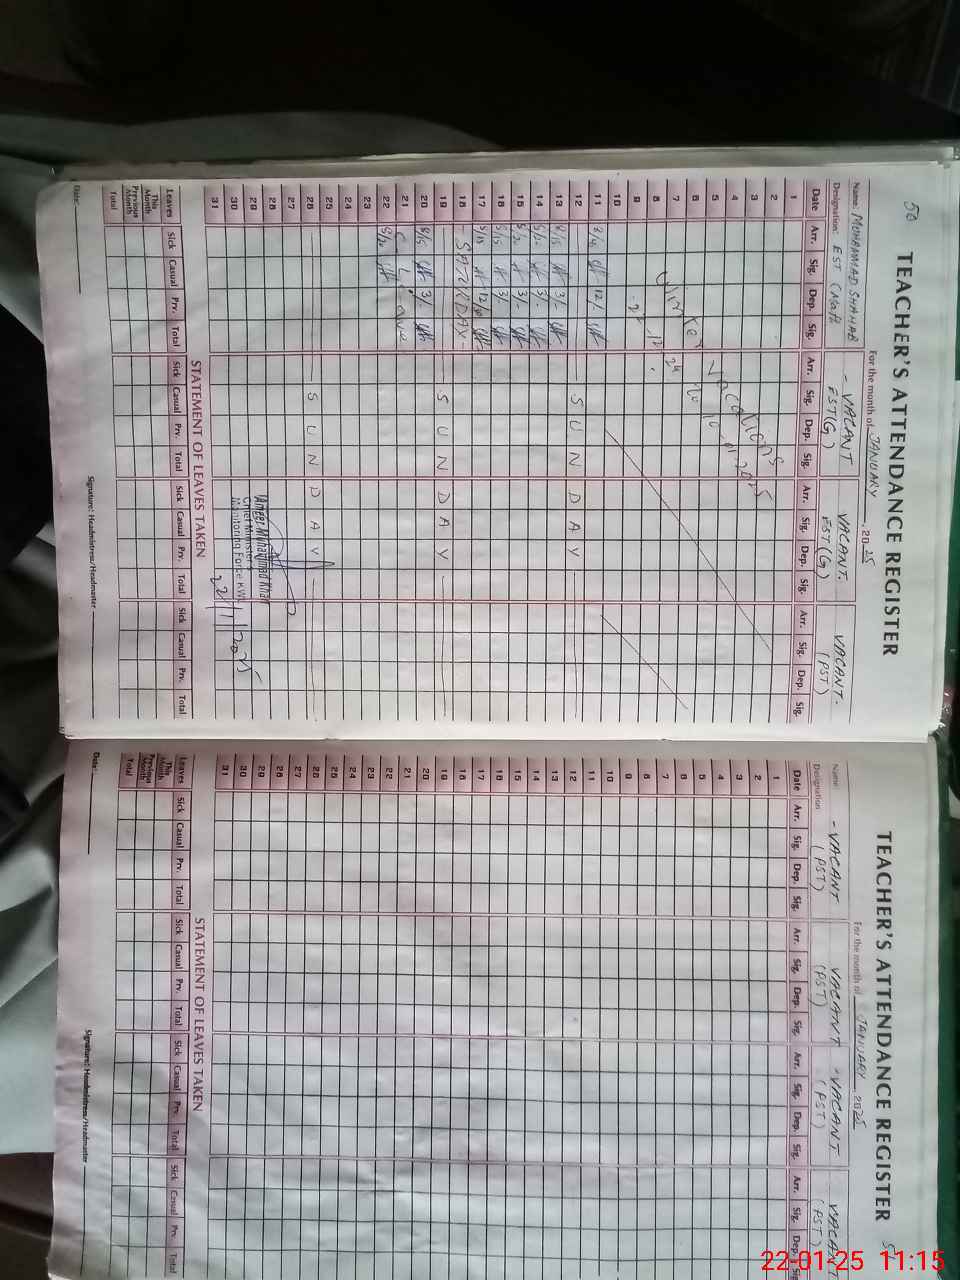 50
TEACHER'S ATTENDANCE REGISTER
For the month of JANUARY, 2025
Name: MUHAMMAD SHAHAB - VACANT VACANT. VACANT.
Designation: EST (Math EST(G) EST(G) (PST)
Date Arr. Sig. Dep. Sig. Arr. Sig. Dep. Sig. Arr. Sig. Dep. Sig. Arr. Sig. Dep. Sig.
1
2
3
4
5
6
7
8
9
10
Winter Vacations
22.12.24 to 10.01.2025
11 12/-
12 SUNDAY
13 8/15 3/-
14 8/20 3/-
15 8/20 3/-
16 8/15 3/-
17 8/15 12/30
18 - SATURDAY -
19 SUNDAY
20 8/15 3/-
21 C. Leave
22 8/20
23
24
25
26 SUNDAY
27
28
29
30
31
Ameer Muhammad Khan
Chief Minister's
Monitoring Force KWL
22/1/2025
STATEMENT OF LEAVES TAKEN
Leaves Sick Casual Prv. Total Sick Casual Prv. Total Sick Casual Prv. Total Sick Casual Prv. Total
This Month
Previous Month
Total
Date: Signature: Headmistress/Headmaster
TEACHER'S ATTENDANCE REGISTER 51
For the month of JANUARY, 2025
Name: - VACANT VACANT - VACANT VACANT
Designation (PST) (PST) (PST) (PST)
Date Arr. Sig. Dep. Sig. Arr. Sig. Dep. Sig. Arr. Sig. Dep. Sig. Arr. Sig. Dep. Sig.
1
2
3
4
5
6
7
8
9
10
11
12
13
14
15
16
17
18
19
20
21
22
23
24
25
26
27
28
29
30
31
STATEMENT OF LEAVES TAKEN
Leaves Sick Casual Prv. Total Sick Casual Prv. Total Sick Casual Prv. Total Sick Casual Prv. Total
This Month
Previous Month
Total
Date: Signature: Headmistress/Headmaster
22-01-25 11:15